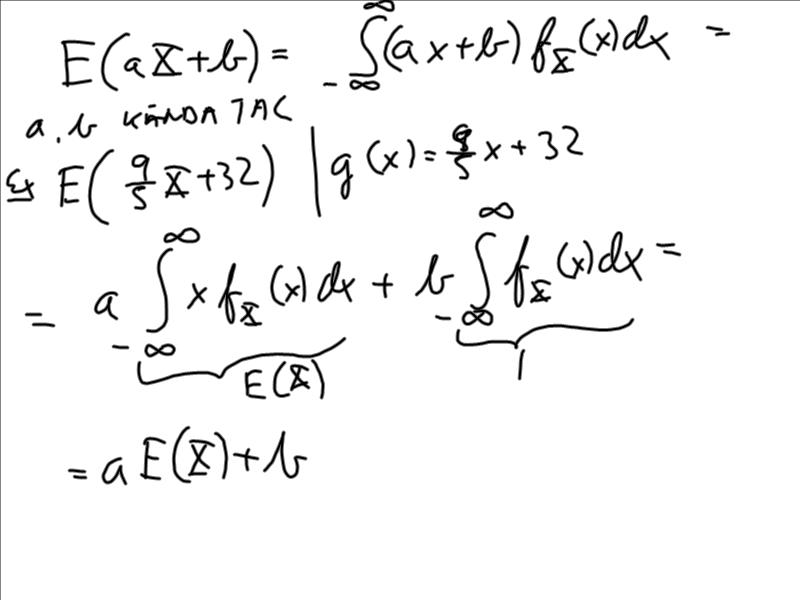 E(aX+b) = ∫_{-∞}^{∞} (ax+b) f_X(x)dx =
a, b KÄNDA TAL
Ex E(9/5 X+32) | g(x) = 9/5 x + 32
= a ∫_{-∞}^{∞} x f_X(x)dx + b ∫_{-∞}^{∞} f_X(x)dx =
E(X) 1
= a E(X) + b